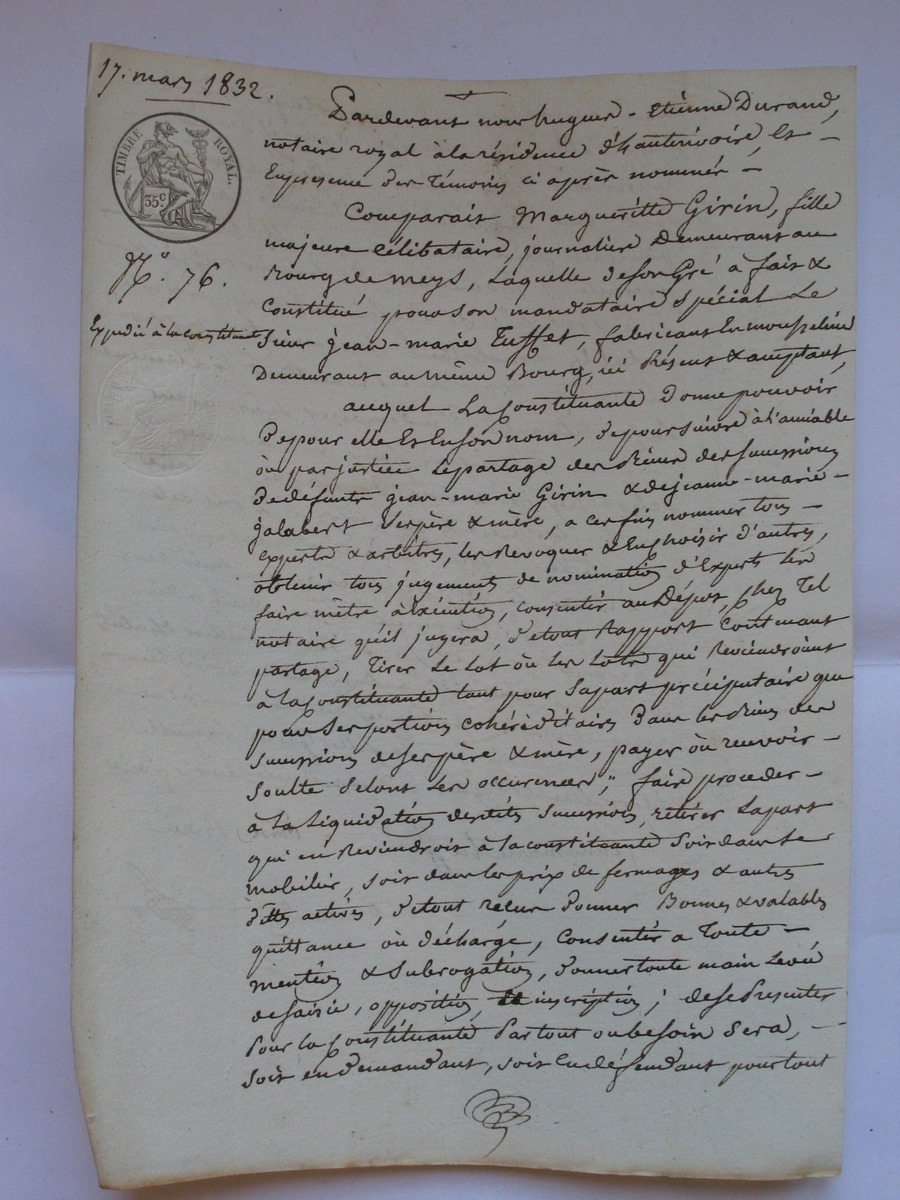 17. mars 1832.
TIMBRE ROYAL.
35 c.
N.º 76.
Expédié à la constituante
Pardevant nous hugues - Etienne Durand,
notaire royal à la résidence d'hauterivoire, Et -
En presence des Témoins ci après nommés -
Comparait Margueritte Girin, fille
majeure Célibataire, journalière Demeurant au
Bourg de meys, Laquelle de son Gré à fait &
Constitué pour son mandataire spécial Le
Sieur jean-marie Tuffet, fabricant En mousseline
Demeurant au même Bourg, ici Présent & acceptant,
auquel La Constituante Donne pouvoir,
De pour elle Et En son nom, de poursuivre à l'amiable
ou par justice Le partage des Biens des successions
De défunts jean-marie Girin & de jeanne-marie -
jalabert ses père & mère, a ces fins nommer tous -
experts & arbitres, les Revoquer & En choisir d'autres,
obtenir tous jugements de nomination d'Experts Les
faire mètre à Exécution, consentir au Dépot, chez Tel
notaire qu'il jugera, de tout Rapport Contenant
partage, Tirer Le Lot ou Les Lots qui Reviendroient
à la Constituante tant pour sa part préciputaire que
pour ses portions cohéréditaires Dans les Biens des
successions de ses père & mère, payer ou recevoir -
soulte selont Les occurences ; faire proceder -
à la Liquidation desdites successions, retirer La part
qui en Reviendroit à la constituante soit dans Le
mobilier, soit dans les prix de fermages & autres
dettes actives, de tout recus Donner Bonnes & valables
quittance ou décharge, Consentir a Toute -
mention & subrogation, donner toute main Levée
de saisie, opposition, inscription ; de se Presenter
Pour la Constituante Partout ou besoin Sera, -
soit en demandant, soit En défendant pour tout